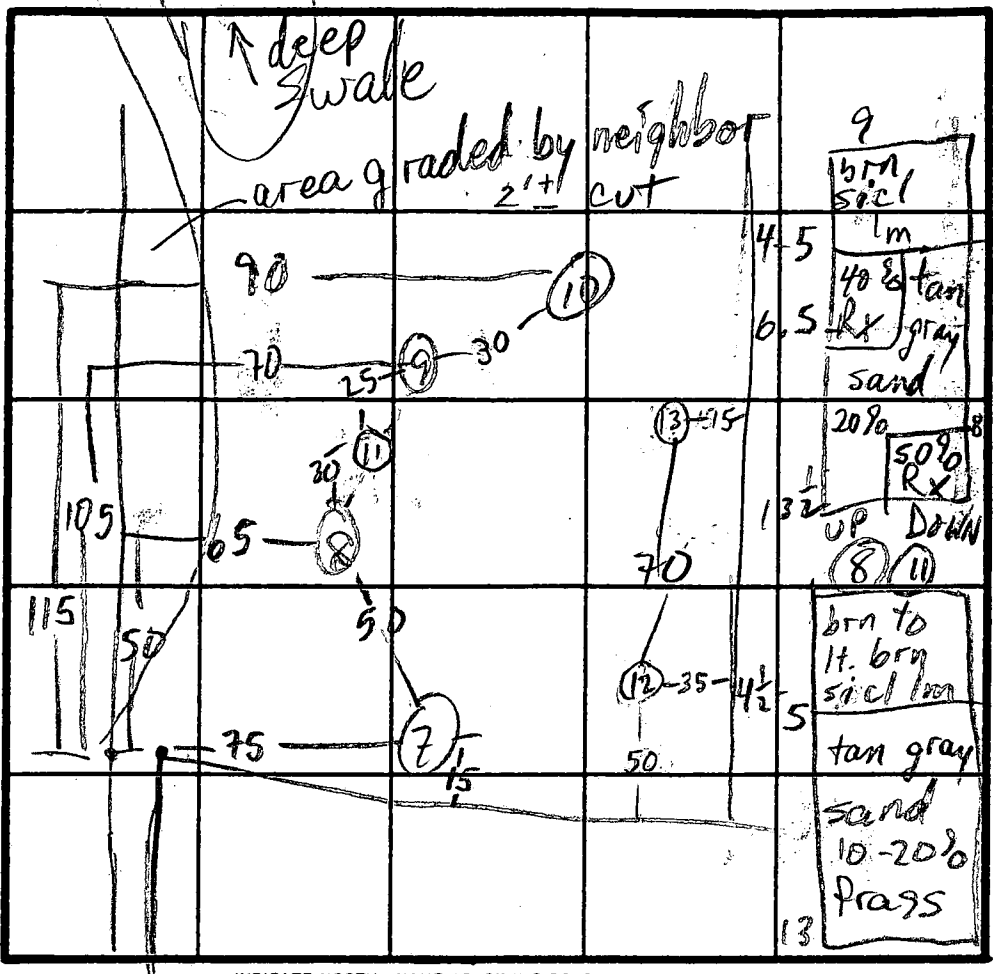 deep
swale
area graded by neighbor
2'± cut
90
10
30
70
9
25
11
30
105
65
8
115
50
50
75
7
15
13
15
70
12
35
50
9
brn
sicl
lm
4-5
40% tan
6.5 Rx gray
sand
20% 8
50%
Rx
13 1/2
UP DOWN
8 11
brn to
lt. brn
sicl lm
4 1/2
5
tan gray
sand
10-20%
frags
13